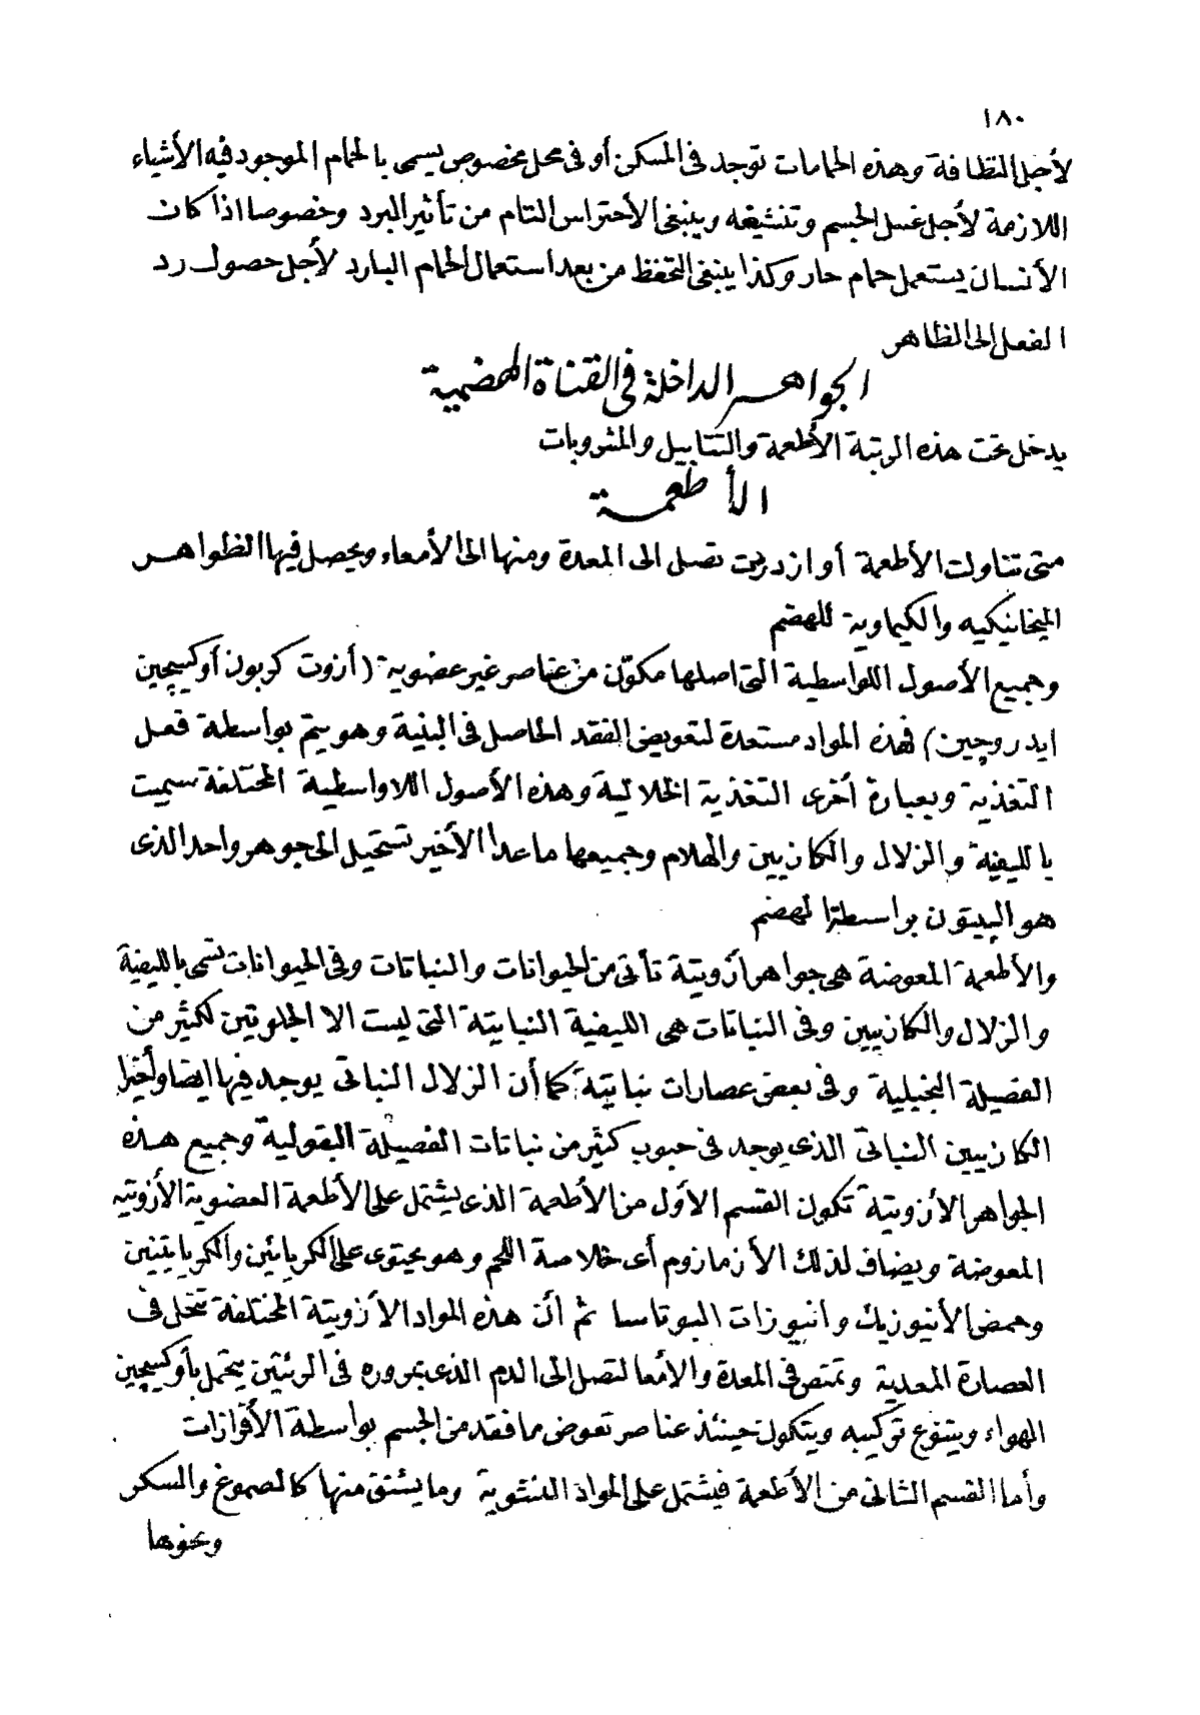 ١٨٠
لأجل النظافة وهذه الحمامات توجد فى المسكن أو فى محل مخصوص يسمى بالحمام الموجود فيه الأشياء
اللازمة لأجل غسل الجسم وتنشيفه وينبغى الأحتراس التام من تأثير البرد وخصوصا اذا كان
الأنسان يستعمل حمام حار وكذا ينبغى التحفظ من بعد استعمال الحمام البارد لأجل حصول رد
الفعل الى الظاهر
الجواهر الداخلة فى القناة الهضمية
يدخل تحت هذه الرتبة الأطعمة والتتابيل والمشروبات
الأطعمة
متى تناولت الأطعمة أو ازدريت تصل الى المعدة ومنها الى الأمعاء ويحصل فيها الظواهر
الميخانيكيه والكيماوية للهضم
وجميع الأصول اللواسطية التى اصلها مكوّن من عناصر غير عضوية (أزوت كربون أوكسيچين
ايدروچين) فهذه المواد مستعدة لتعويض الفقد الحاصل فى البنية وهو يتم بواسطة فعل
التغذية وبعبارة أخرى التغذية الخلالية وهذه الأصول اللاواسطية المختلفة سميت
بالليفية والزلال والكازيين والهلام وجميعها ماعدا الأخير تستحيل الى جوهر واحد الذى
هو الپيتون بواسطة الهضم
والأطعمة المعوضة هى جواهر أزوتية تأتى من الحيوانات والنباتات وفى الحيوانات تسمى بالليفية
والزلال والكازيين وفى النباتات هى الليفية النباتية التى ليست الا الجلوتين لكثير من
الفصيلة النجيلية وفى بعض عصارات نباتية كما أن الزلال النباتى يوجد فيها ايضا وأخيرا
الكازيين النباتى الذى يوجد فى حبوب كثير من نباتات الفصيلة البقولية وجميع هذه
الجواهر الأزوتية تكون القسم الأول من الأطعمة الذى يشتمل على الأطعمة العضوية الأزوتيه
المعوضة ويضاف لذلك الأزمازوم أى خلاصة اللحم وهو يحتوى على الكرياتين والكرياتينين
وحمض الأنيوزيك وانيوزات البوتاسا ثم أن هذه المواد الأزوتية المختلفة تنحل فى
العصارة المعدية وتمتص فى المعدة والأمعا لتصل الى الدم الذى بمروره فى الرئتين يتحمل بأوكسيچين
الهواء ويتنوع تركيبه ويتكون حينئذ عناصر تعوض ما فقد من الجسم بواسطة الأفرازات
وأما القسم الثانى من الأطعمة فيشتمل على المواد النشوية وما يشتق منها كالصموغ والسكر
ونحوها